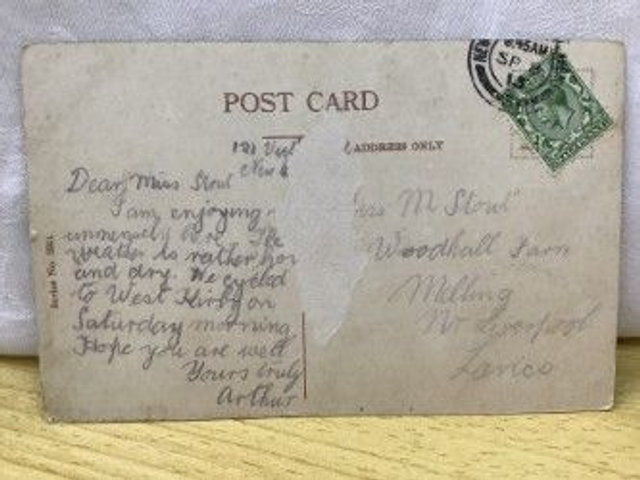 POST CARD
ADDRESS ONLY
6.45AM
SP
13
NEW
121 Vict
New
Dear Miss Stout
I am enjoying
immensely The
weather is rather hot
and dry. We cycled
to West Kirby on
Saturday morning
Hope you are well
Yours truly
Arthur
Miss M Stout
Woodhall Farm
Melling
Nr Liverpool
Lancs
Series No.